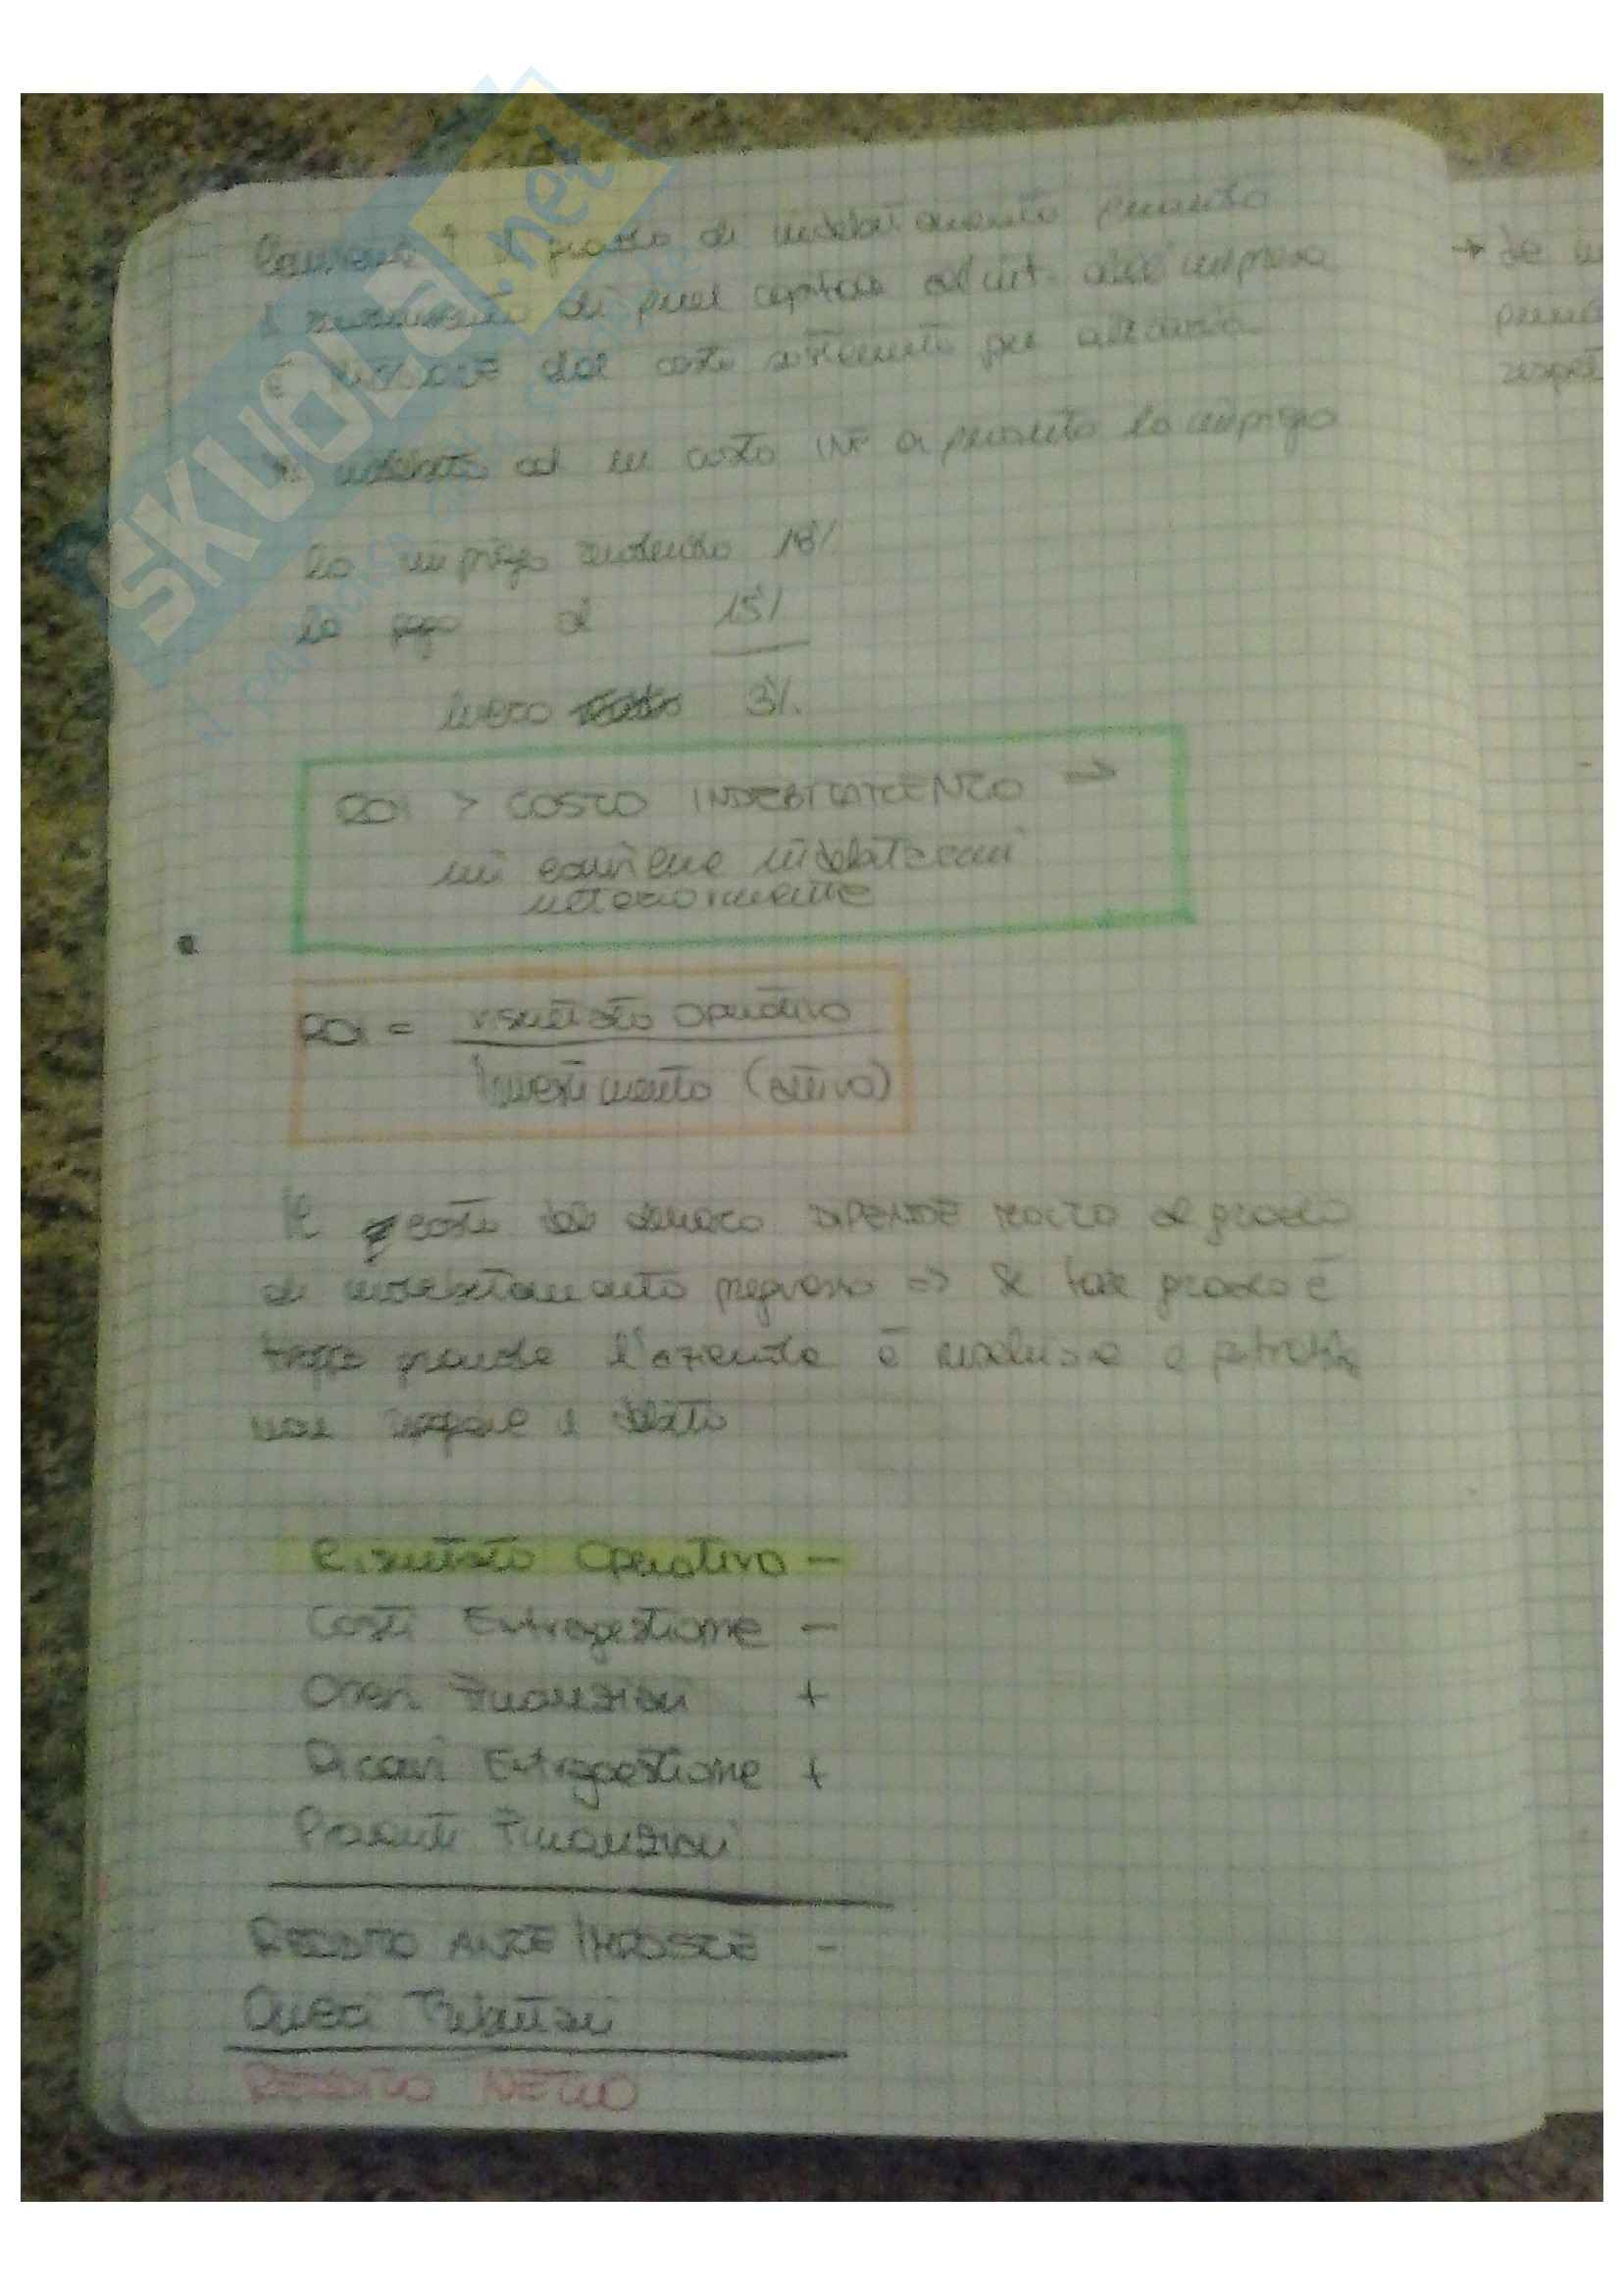 Conviene ↑ il grado di indebitamento quando
il rendimento di quel capitale all'int. dell'impresa
è dal costo sostenuto per
indebito ad un costo INF a quanto lo impiego
lo impiego rendendo 18%
lo pago al 15%
lucro 3%.
ROI > COSTO INDEBITAMENTO ⇒
mi conviene indebitarmi
ulteriormente
ROI = risultato operativo
Investimento (attivo)
Il costo del denaro DIPENDE MOLTO al grado
di indebitamento pregresso ⇒ Se tale grado è
troppo grande l'azienda è e potrebbe
non il debito
Risultato Operativo -
Costi Extragestione -
Oneri Finanziari +
Ricavi Extragestione +
Proventi Finanziari
REDDITO ANTE IMPOSTE -
Oneri Tributari
REDDITO NETTO
SKUOLA.net